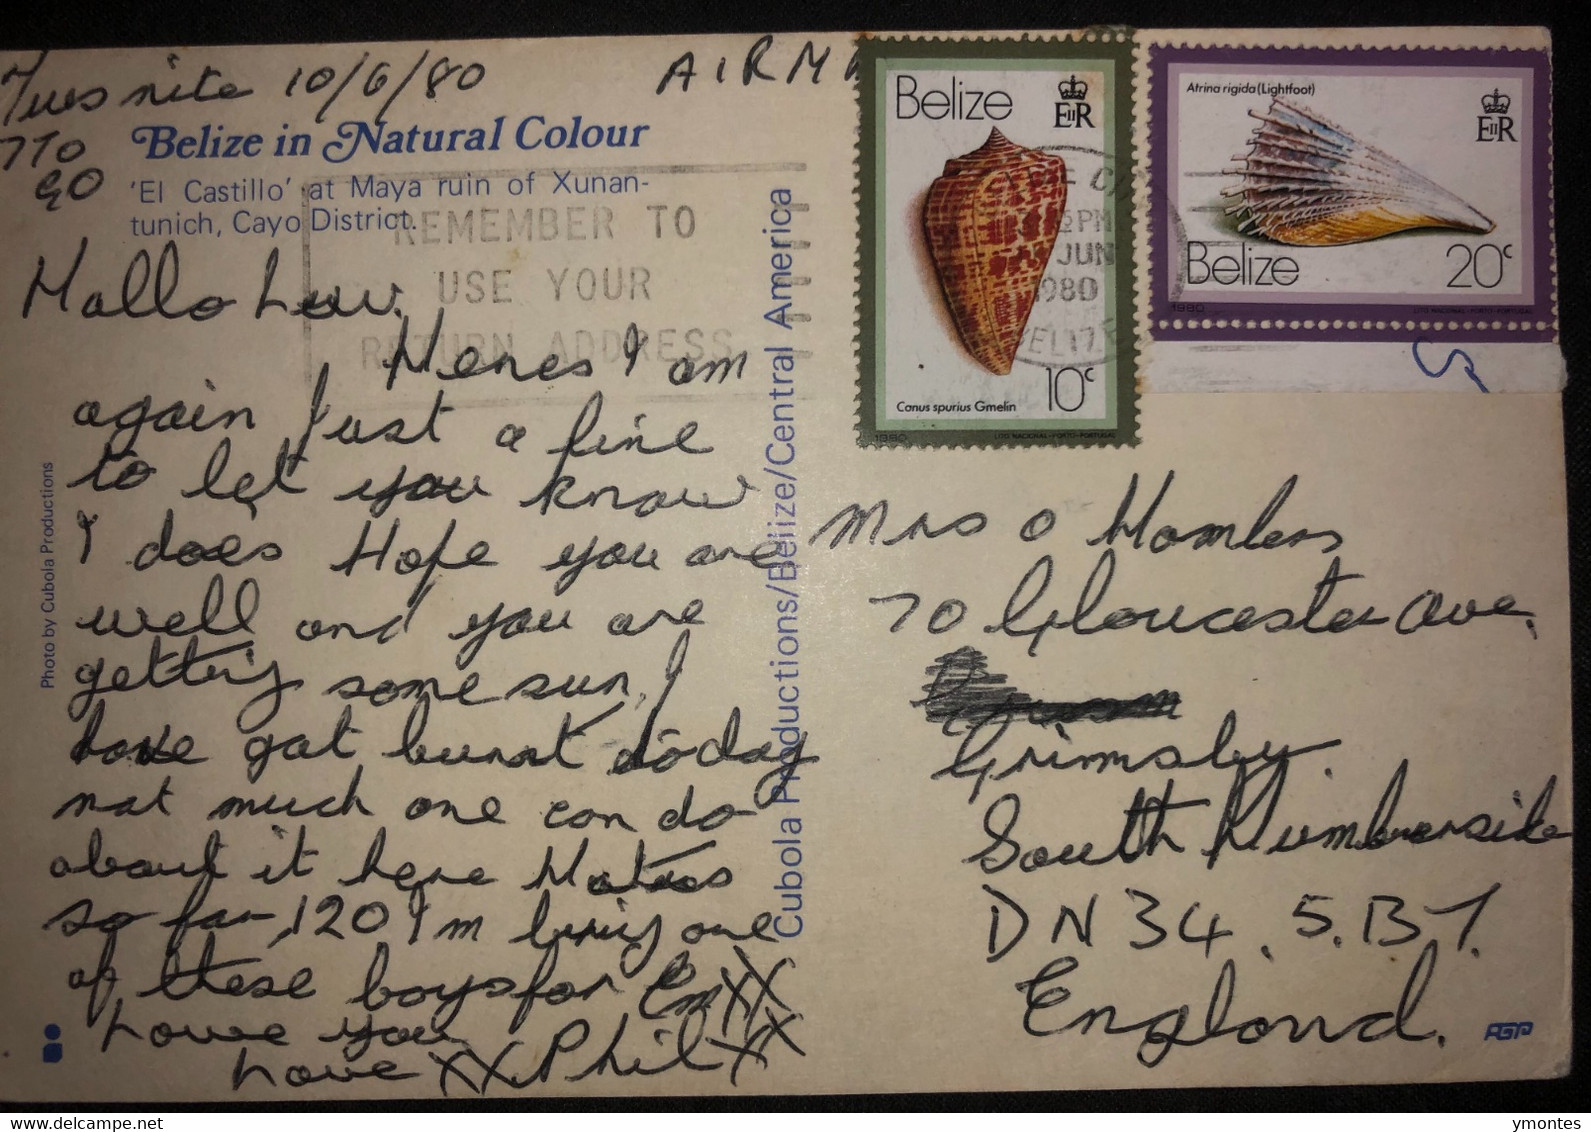 Tues nite 10/6/80
77 TO
GO
AIRM
Belize in Natural Colour
'El Castillo' at Maya ruin of Xunan-
tunich, Cayo District.
REMEMBER TO
USE YOUR
RETURN ADDRESS
Hallo Luv.
Heres I am
again Just a fine
to let you know
I does Hope you are
well and you are
getting some sun. I
have got burnt today
not much one can do
about it here
so far 120 I'm one
of these boys for Em XX
Love you
Love XXX Phil XX
Photo by Cubola Productions
Cubola Productions/Belize/Central America
Belize
EIIR
10c
Conus spurius Gmelin
1980
LITO NACIONAL-PORTO-PORTUGAL
Atrina rigida (Lightfoot)
EIIR
Belize
20c
1980
LITO NACIONAL-PORTO-PORTUGAL
PM
JUN
1980
BELIZE
Mrs O
70 Gloucester Ave,
Grimsby
South Humberside
DN34. 5.B7.
England.
ymontes